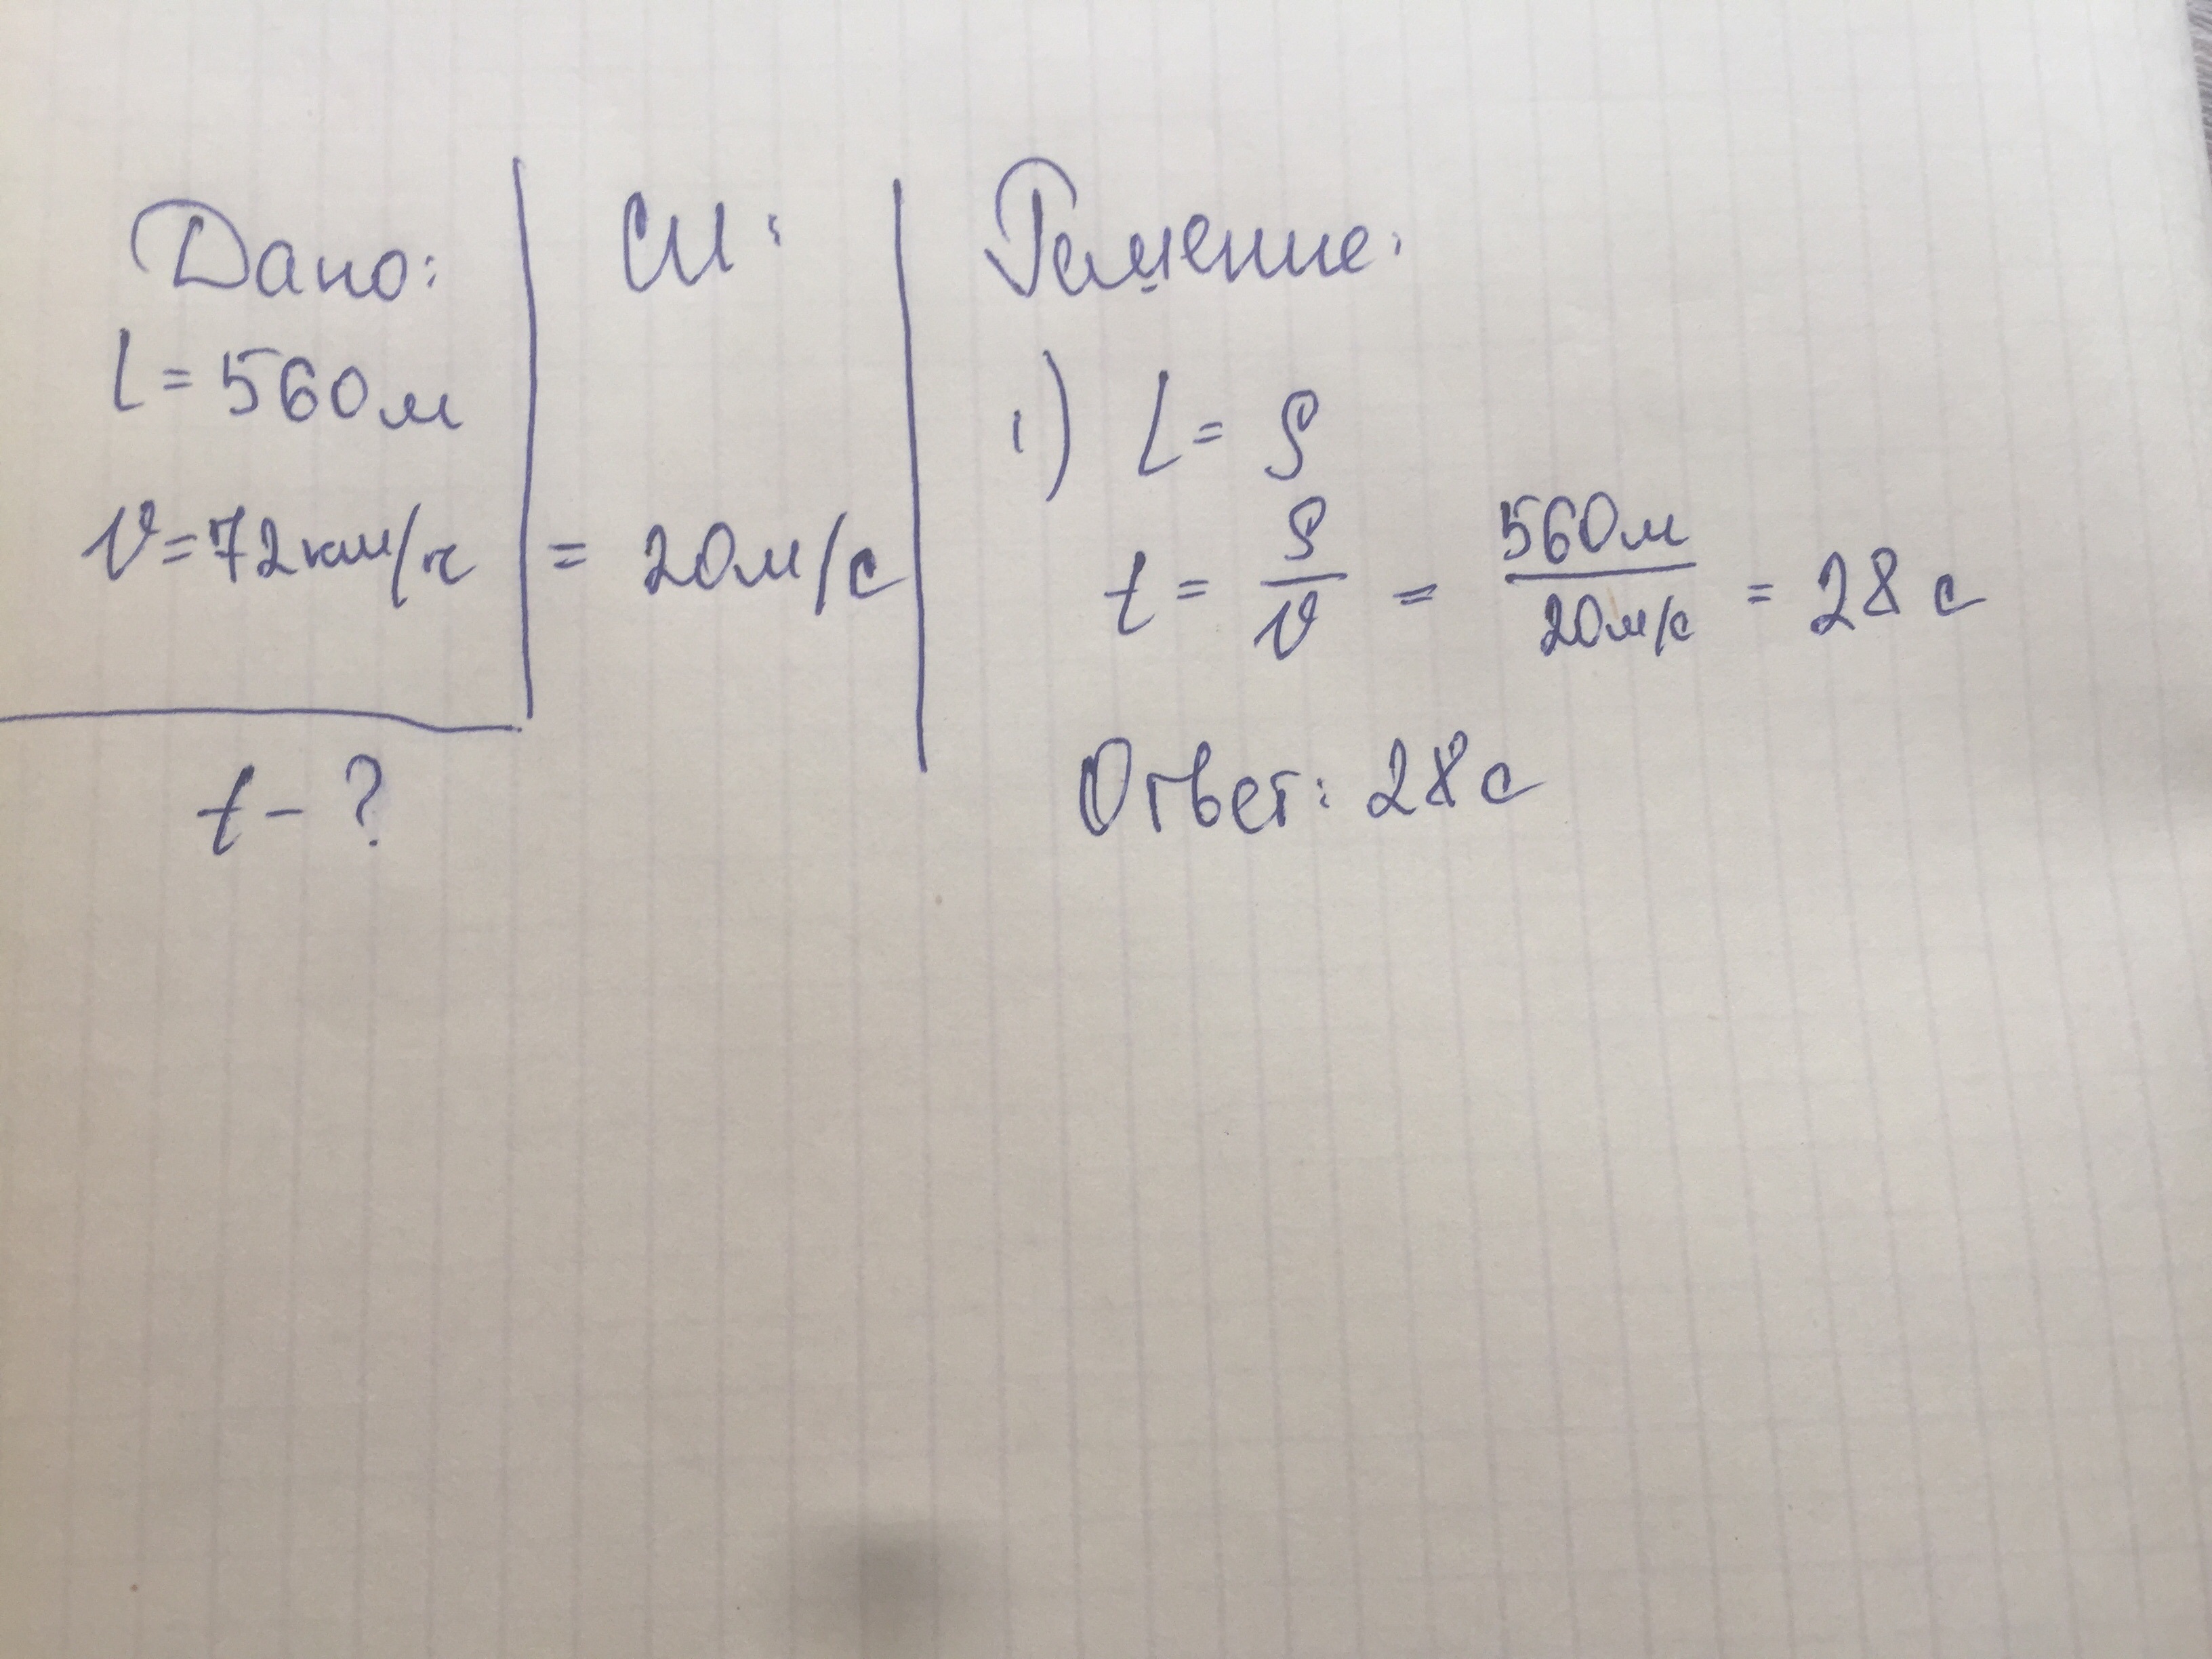 Дано:
l = 560м
v = 72км/ч
t - ?
СИ:
= 20м/с
Решение:
1) L = S
t = S/v = 560м/20м/с = 28 с
Ответ: 28 с